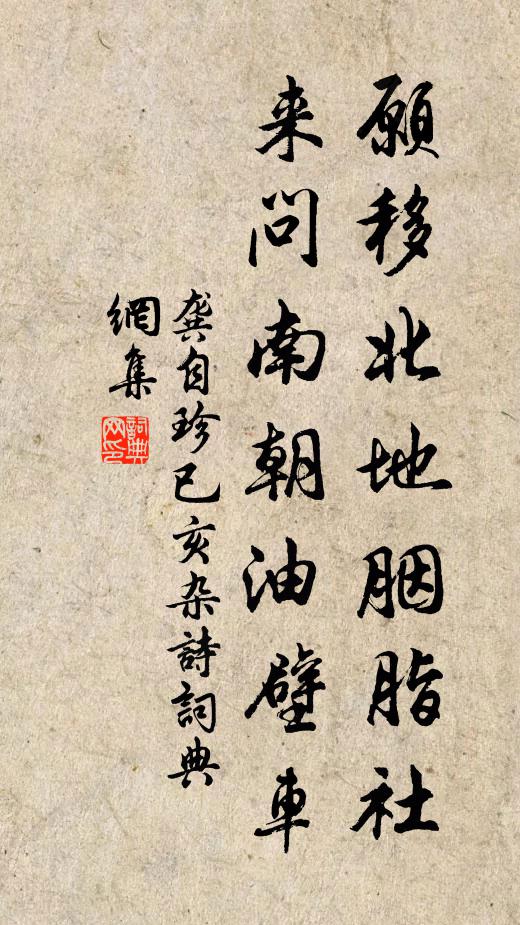 願移北地胭脂社
来問南朝油壁車
龚自珍已亥杂詩詞典
網集
詞典
网印